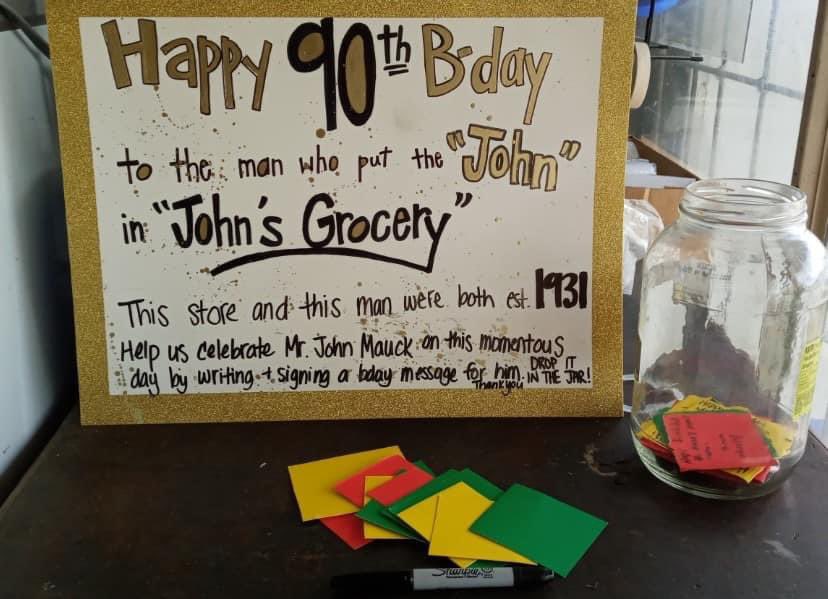 Happy 90th B-day
to the man who put the "John"
in "John's Grocery"
This store and this man were both est. 1931
Help us celebrate Mr. John Mauck on this momentous
day by writing + signing a bday message for him. DROP IT
Thankyou IN THE JAR!
Sharpie